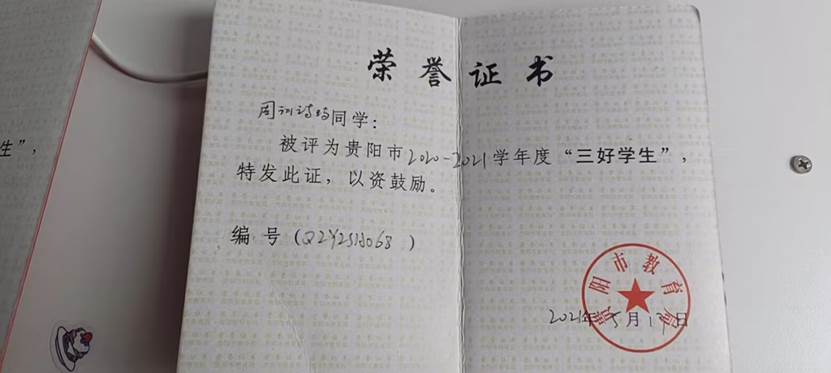 生”，
荣誉证书
周训诗琦同学：
被评为贵阳市2020-2021学年度“三好学生”，
特发此证，以资鼓励。
编号（QZYZSH068）
贵阳市教育局
2021年5月17日